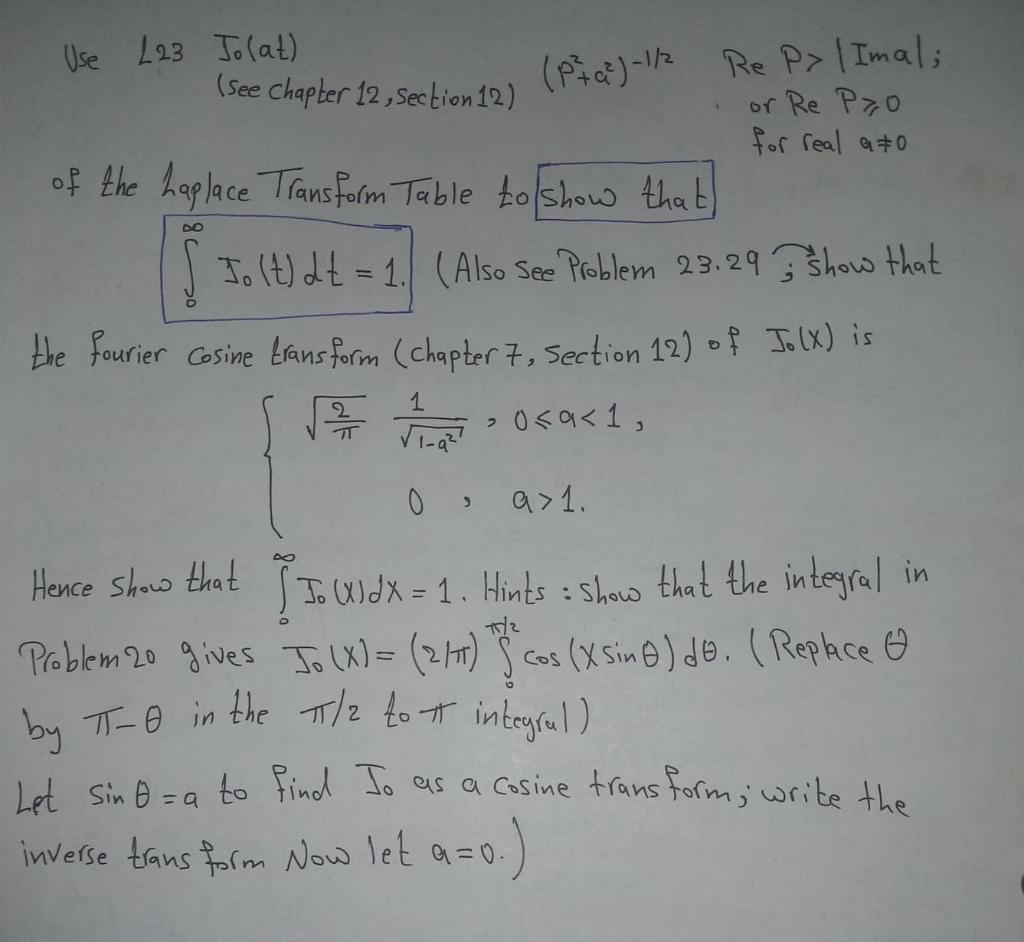 Use L23 J₀(at) (P²+a²)^-1/2 Re P > |Im a|;
(see chapter 12, section 12) or Re P ⩾ 0
for real a≠0
of the Laplace Transform Table to show that
∫₀^∞ J₀(t) dt = 1. (Also See Problem 23.29 ; show that
the fourier cosine transform (chapter 7, section 12) of J₀(X) is
{ √(2/π) 1/√(1-a²) , 0⩽a<1,
0 , a>1.
Hence show that ∫₀^∞ J₀(X)dX = 1. Hints : show that the integral in
Problem 20 gives J₀(X) = (2/π) ∫₀^π/2 cos (X sin θ) dθ. (Replace θ
by π-θ in the π/2 to π integral)
Let sin θ = a to find J₀ as a cosine transform; write the
inverse transform Now let a=0.)